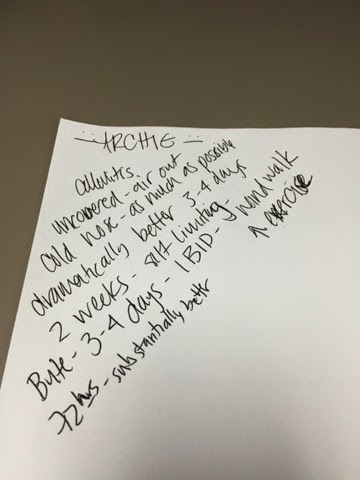 ARCHIE
cellulitis
uncovered - air out
cold hose - as much as possible
dramatically better 3-4 days
2 weeks - self limiting
Bute - 3-4 days - 1 BID - hand walk
exercise
72 hrs - substantially better